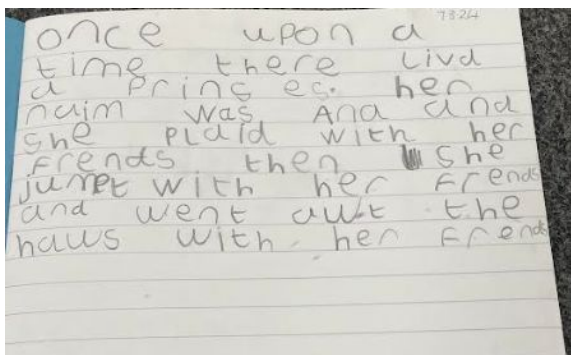 7.3.24
once upon a
time there livd
a prins es. her
naim was Ana and
she plaid with her
frends then she
jumpt with her frends
and went awt the
haws with her frends